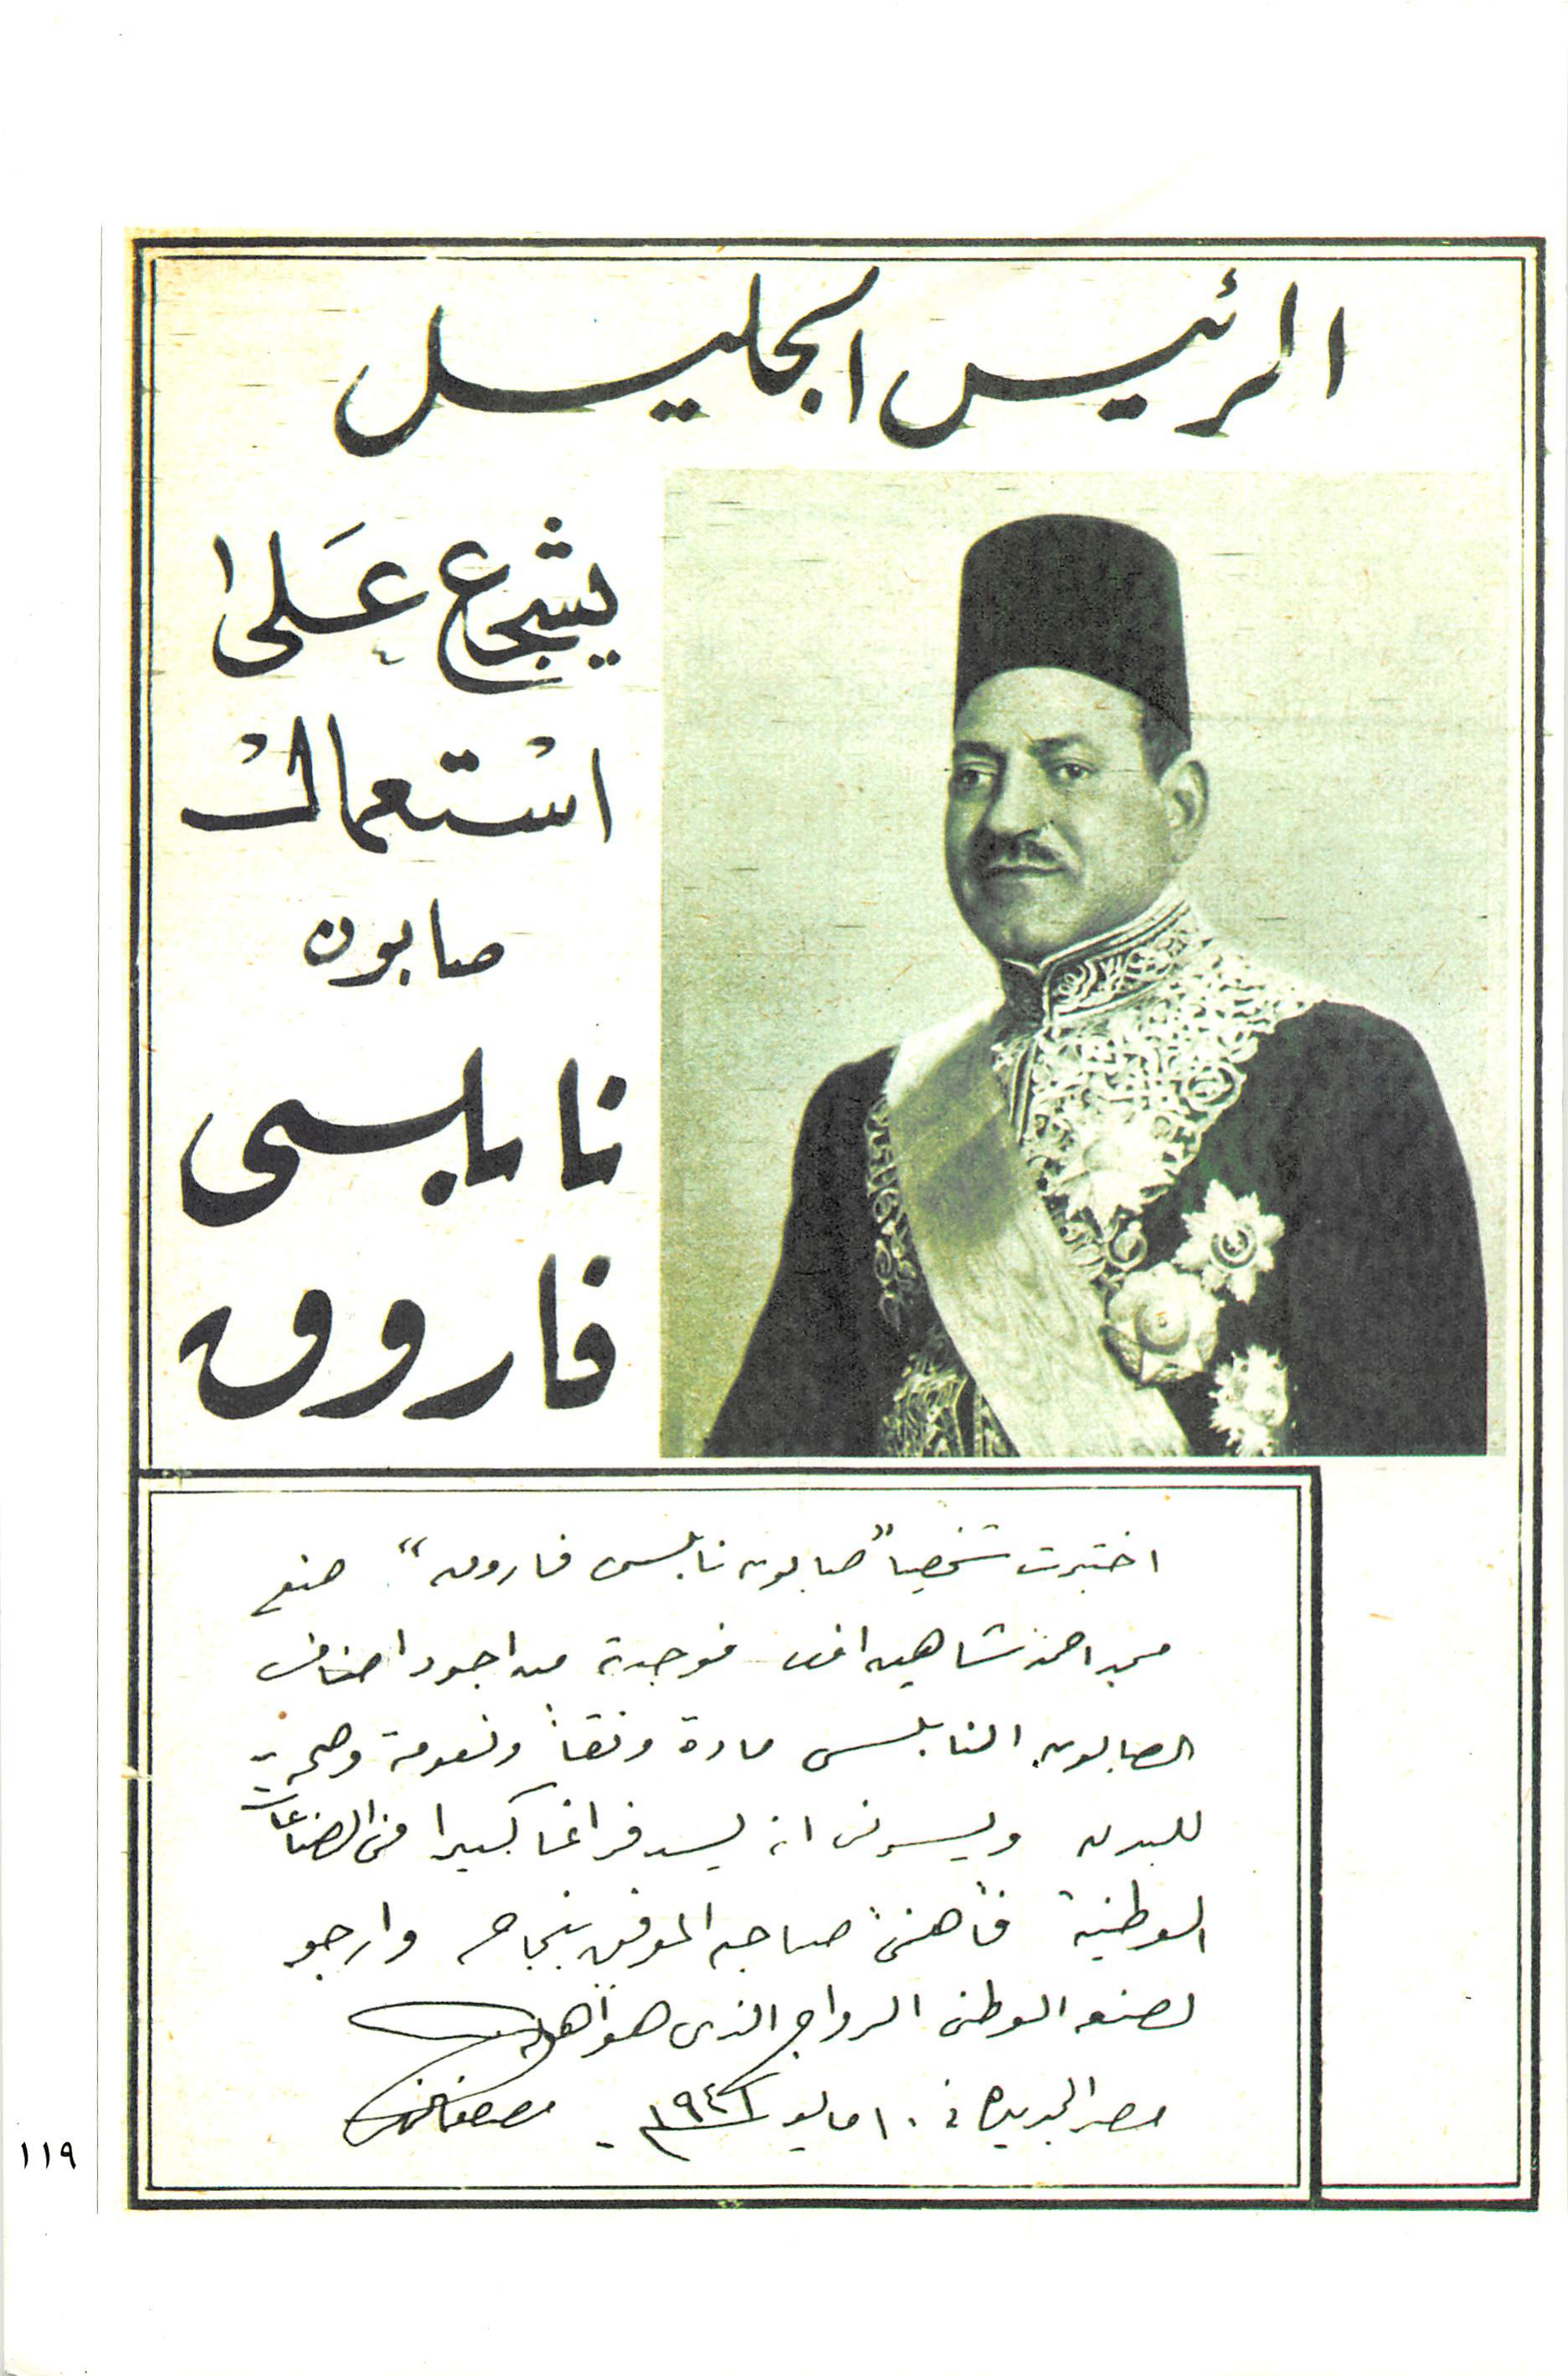 الرئيس الجليل
يشجع عَلى ا
استعمال
صابون
نابلسى
فاروق
اختبرت شخصيا "صابون نابلسى فاروق" صنع
محمد احمد شاهين افندى فوجدته من اجود اصناف
الصابون النابلسى مادة ونقاء ونعومة وصحية
للبدن ويسرنى انه يسد فراغا كبيرا فى الصناعات
الوطنية فأهنئ صاحبه الموفق بنجاحه وارجو
لصنعه الوطنى الرواج الذى هو أهله
مصر الجديدة فى ١٠ مايو ١٩٤٦ - مصطفى النحاس
١١٩